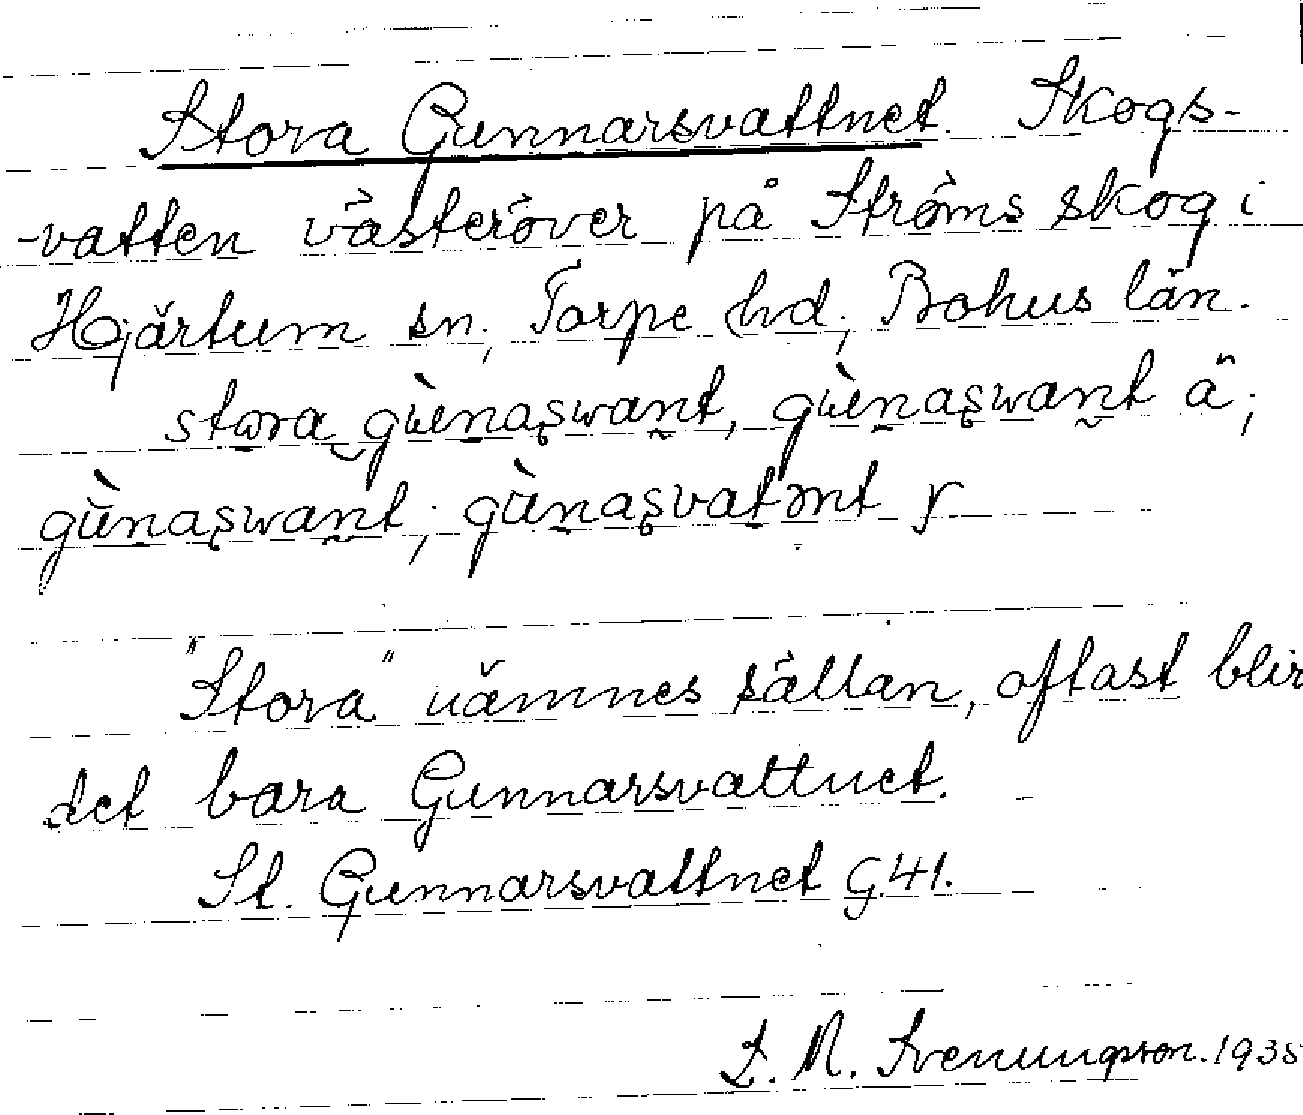 Stora Gunnarsvattnet. Skogs-
-vatten västeröver på Ströms skog i
Hjärtum sn, Torpe hd, Bohus län.
stora gùnaşwant, gùnaşwant ä;
gùnaşwant; gùnaşvatənt y
"Stora" nämnes sällan, oftast blir
det bara Gunnarsvattnet.
St. Gunnarsvattnet G.41.
S. M. Svenungson. 1935